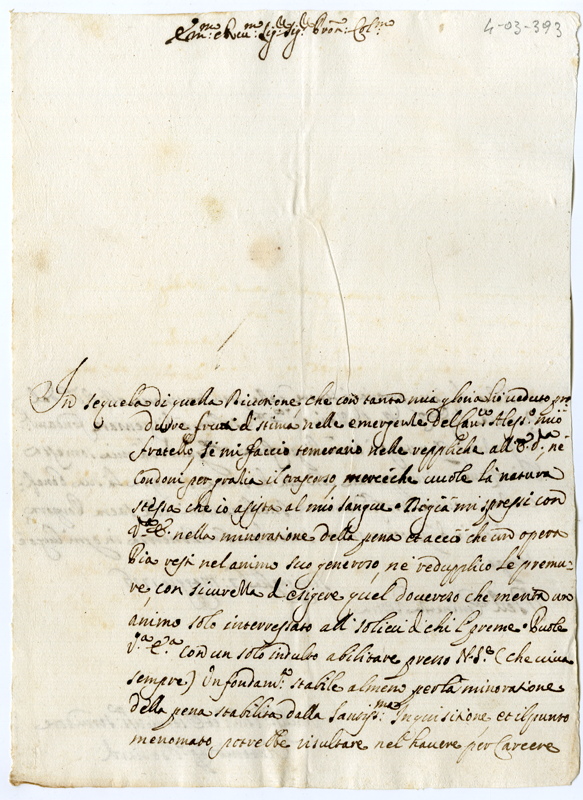 4-03-393
Em.mo e Rev.mo Sig.re Sig.re Pron: Col.mo
In sequela di quella che con tanta mia gloria hò veduto pro
durre frutti di stima nelle emergente Del Aless.o mio
fratello, se mi faccio temerario nelle reppliche all' ne
Condoni per gratia il trascorso merceche vuole la natura
stessa che io assista al mio sangue. mi spressi con
nella minoratione della pena et acciò che un opera
Pia resti nel animo suo generoso, ne redupplico le premu-
re, con sicurezza di esigere quel dovere che merita un
animo solo interressato all' di chi l preme. Puole
V.a E.a con un solo indulto abilitare presso N. S.e (che viva
sempre) Un fondam.to stabile almeno per la minoratione
della pena stabilita dalla Inquisitione et il punto
menomato potrebbe risultare nel havere per Carcere